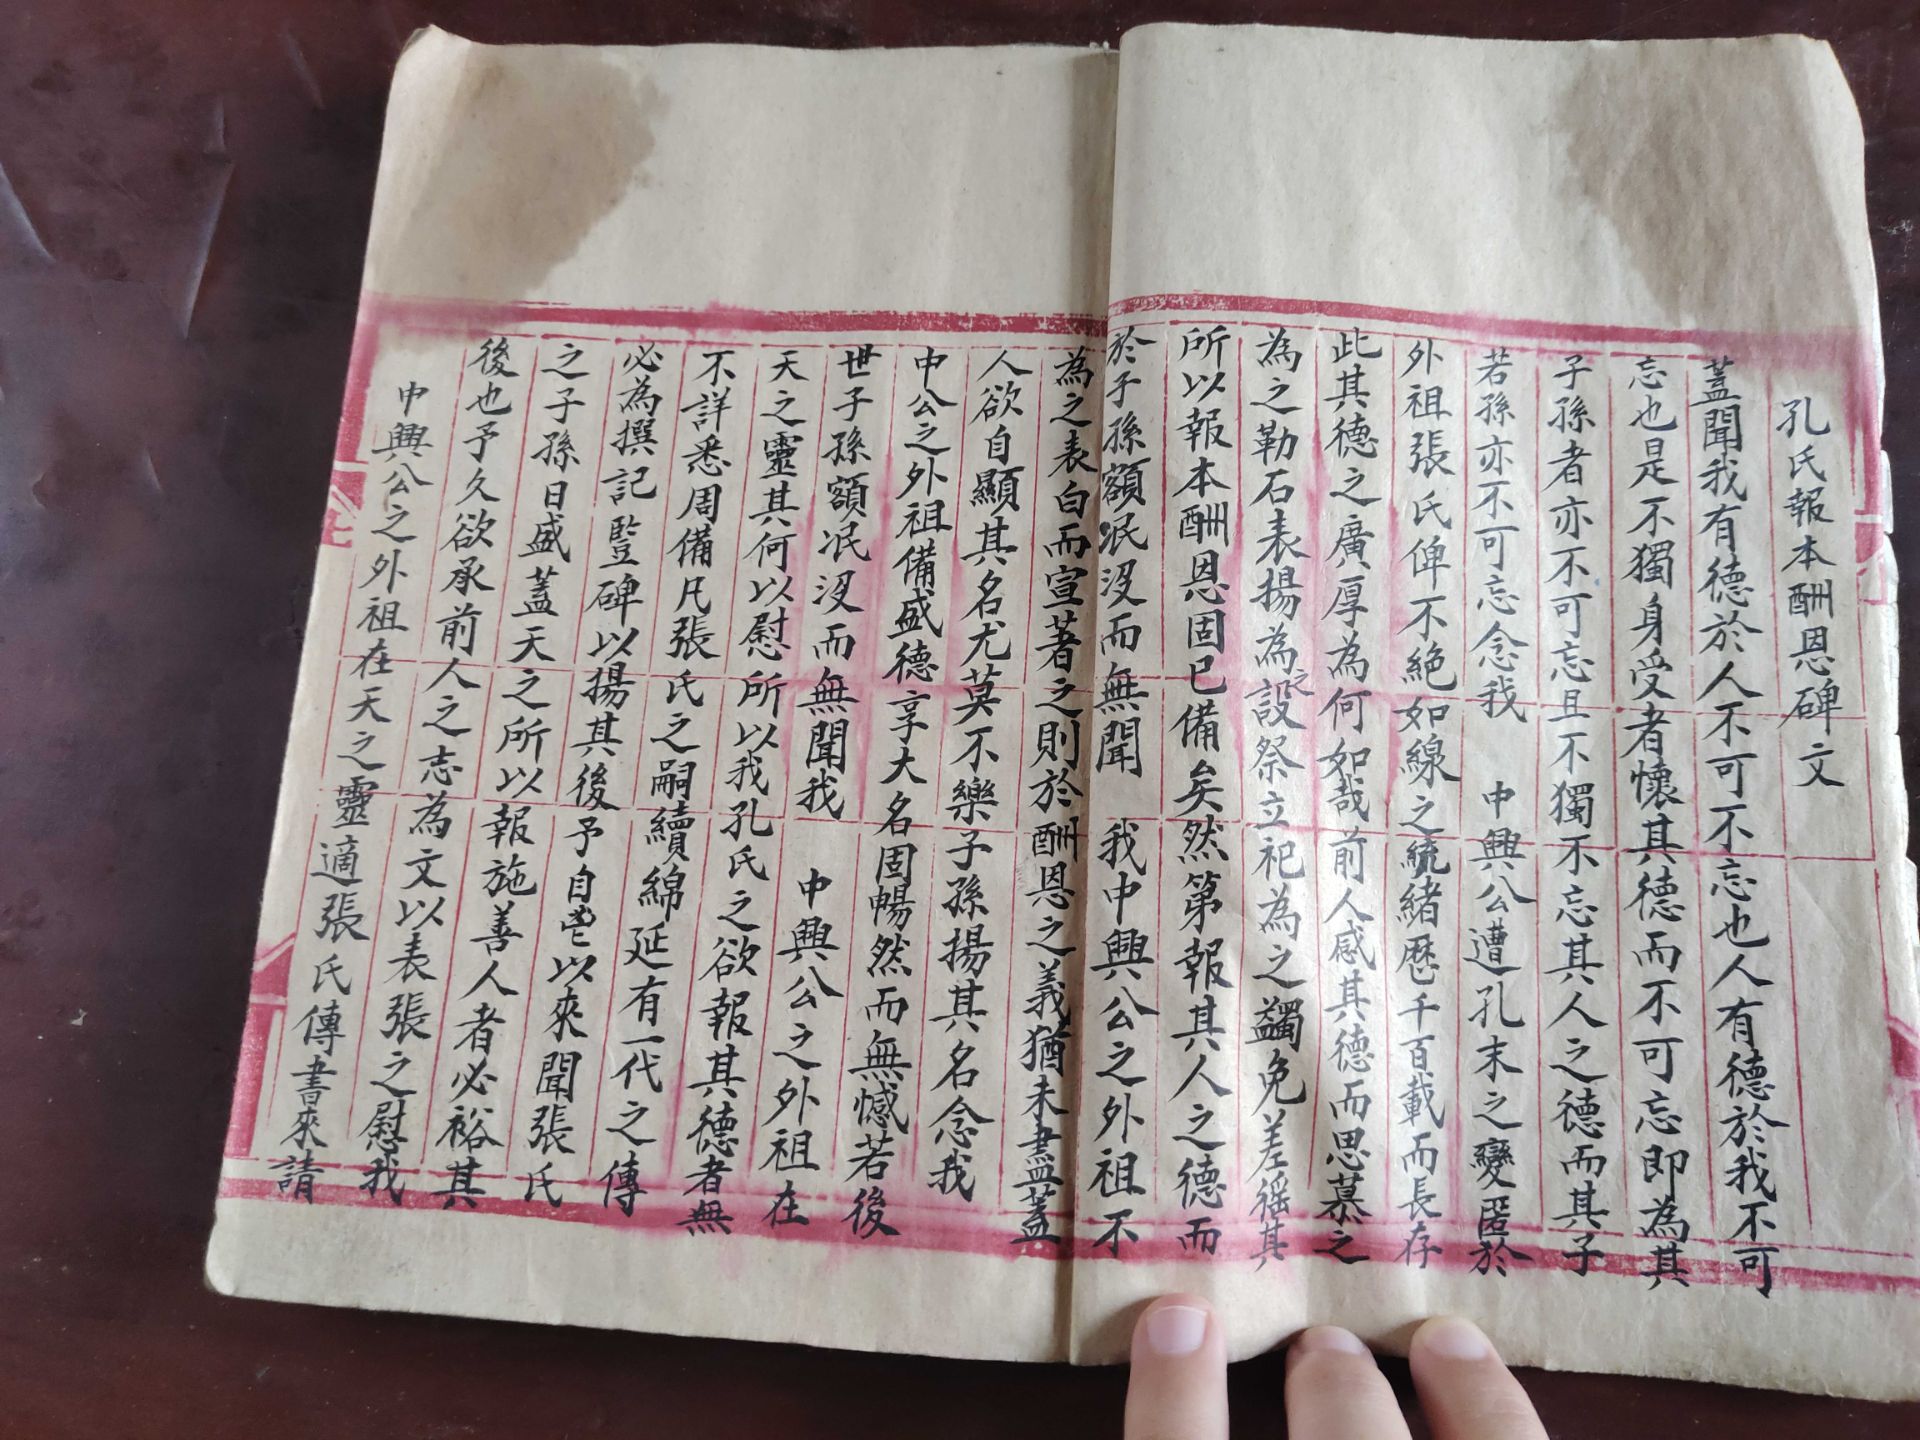 孔氏報本酬恩碑文
蓋聞我有德於人不可不忘也人有德於我不可
忘也是不獨身受者懷其德而不可忘即為其
子孫者亦不可忘且不獨不忘其人之德而其子
若孫亦不可忘念我 中興公遭孔末之變匿於
外祖張氏俾不絕如線之統緒歷千百載而長存
此其德之廣厚為何如哉前人感其德而思慕之
為之勒石表揚為之設祭立祀為之蠲免差徭其
所以報本酬恩固已備矣然第報其人之德而
於子孫額泯沒而無聞 我中興公之外祖不
為之表白而宣著之則於酬恩之義猶未盡蓋
人欲自顯其名尤莫不樂子孫揚其名念我
中公之外祖備盛德享大名固暢然而無憾若後
世子孫額泯沒而無聞我 中興公之外祖在
天之靈其何以慰所以我孔氏之欲報其德者無
不詳悉周備凡張氏之嗣續綿延有一代之傳
必為撰記豎碑以揚其後予自以來聞張氏
之子孫日盛蓋天之所以報施善人者必裕其
後也予久欲承前人之志為文以表張之慰我
中興公之外祖在天之靈適張氏傳書來請